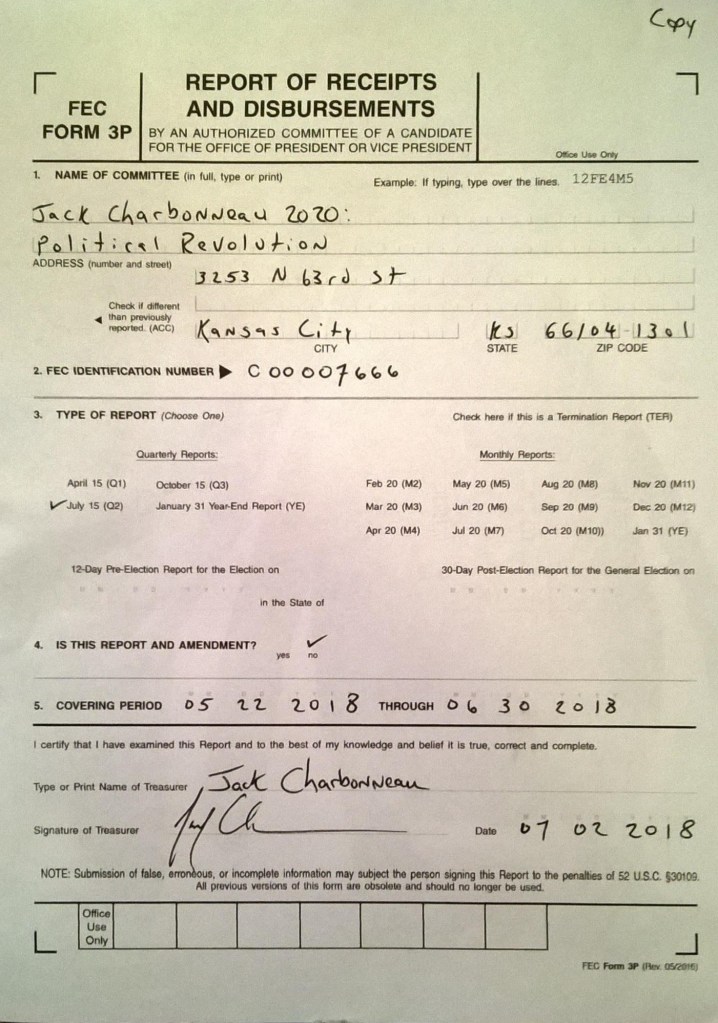 Copy
FEC
FORM 3P
REPORT OF RECEIPTS
AND DISBURSEMENTS
BY AN AUTHORIZED COMMITTEE OF A CANDIDATE
FOR THE OFFICE OF PRESIDENT OR VICE PRESIDENT
Office Use Only
1. NAME OF COMMITTEE (in full, type or print)
Example: If typing, type over the lines. 12FE4M5
Jack Charbonneau 2020:
Political Revolution
ADDRESS (number and street)
3253 N 63rd St
Check if different
than previously
reported. (ACC)
Kansas City KS 66104-1301
CITY STATE ZIP CODE
2. FEC IDENTIFICATION NUMBER ▶ C 00007666
3. TYPE OF REPORT (Choose One)
Check here if this is a Termination Report (TER)
Quarterly Reports:
Monthly Reports:
April 15 (Q1) October 15 (Q3)
Feb 20 (M2) May 20 (M5) Aug 20 (M8) Nov 20 (M11)
✓ July 15 (Q2) January 31 Year-End Report (YE)
Mar 20 (M3) Jun 20 (M6) Sep 20 (M9) Dec 20 (M12)
Apr 20 (M4) Jul 20 (M7) Oct 20 (M10)) Jan 31 (YE)
12-Day Pre-Election Report for the Election on
30-Day Post-Election Report for the General Election on
in the State of
4. IS THIS REPORT AND AMENDMENT? ✓
yes no
5. COVERING PERIOD 05 22 2018 THROUGH 06 30 2018
I certify that I have examined this Report and to the best of my knowledge and belief it is true, correct and complete.
Type or Print Name of Treasurer Jack Charbonneau
Signature of Treasurer
Date 07 02 2018
NOTE: Submission of false, erroneous, or incomplete information may subject the person signing this Report to the penalties of 52 U.S.C. §30109.
All previous versions of this form are obsolete and should no longer be used.
Office
Use
Only
FEC Form 3P (Rev. 05/2016)